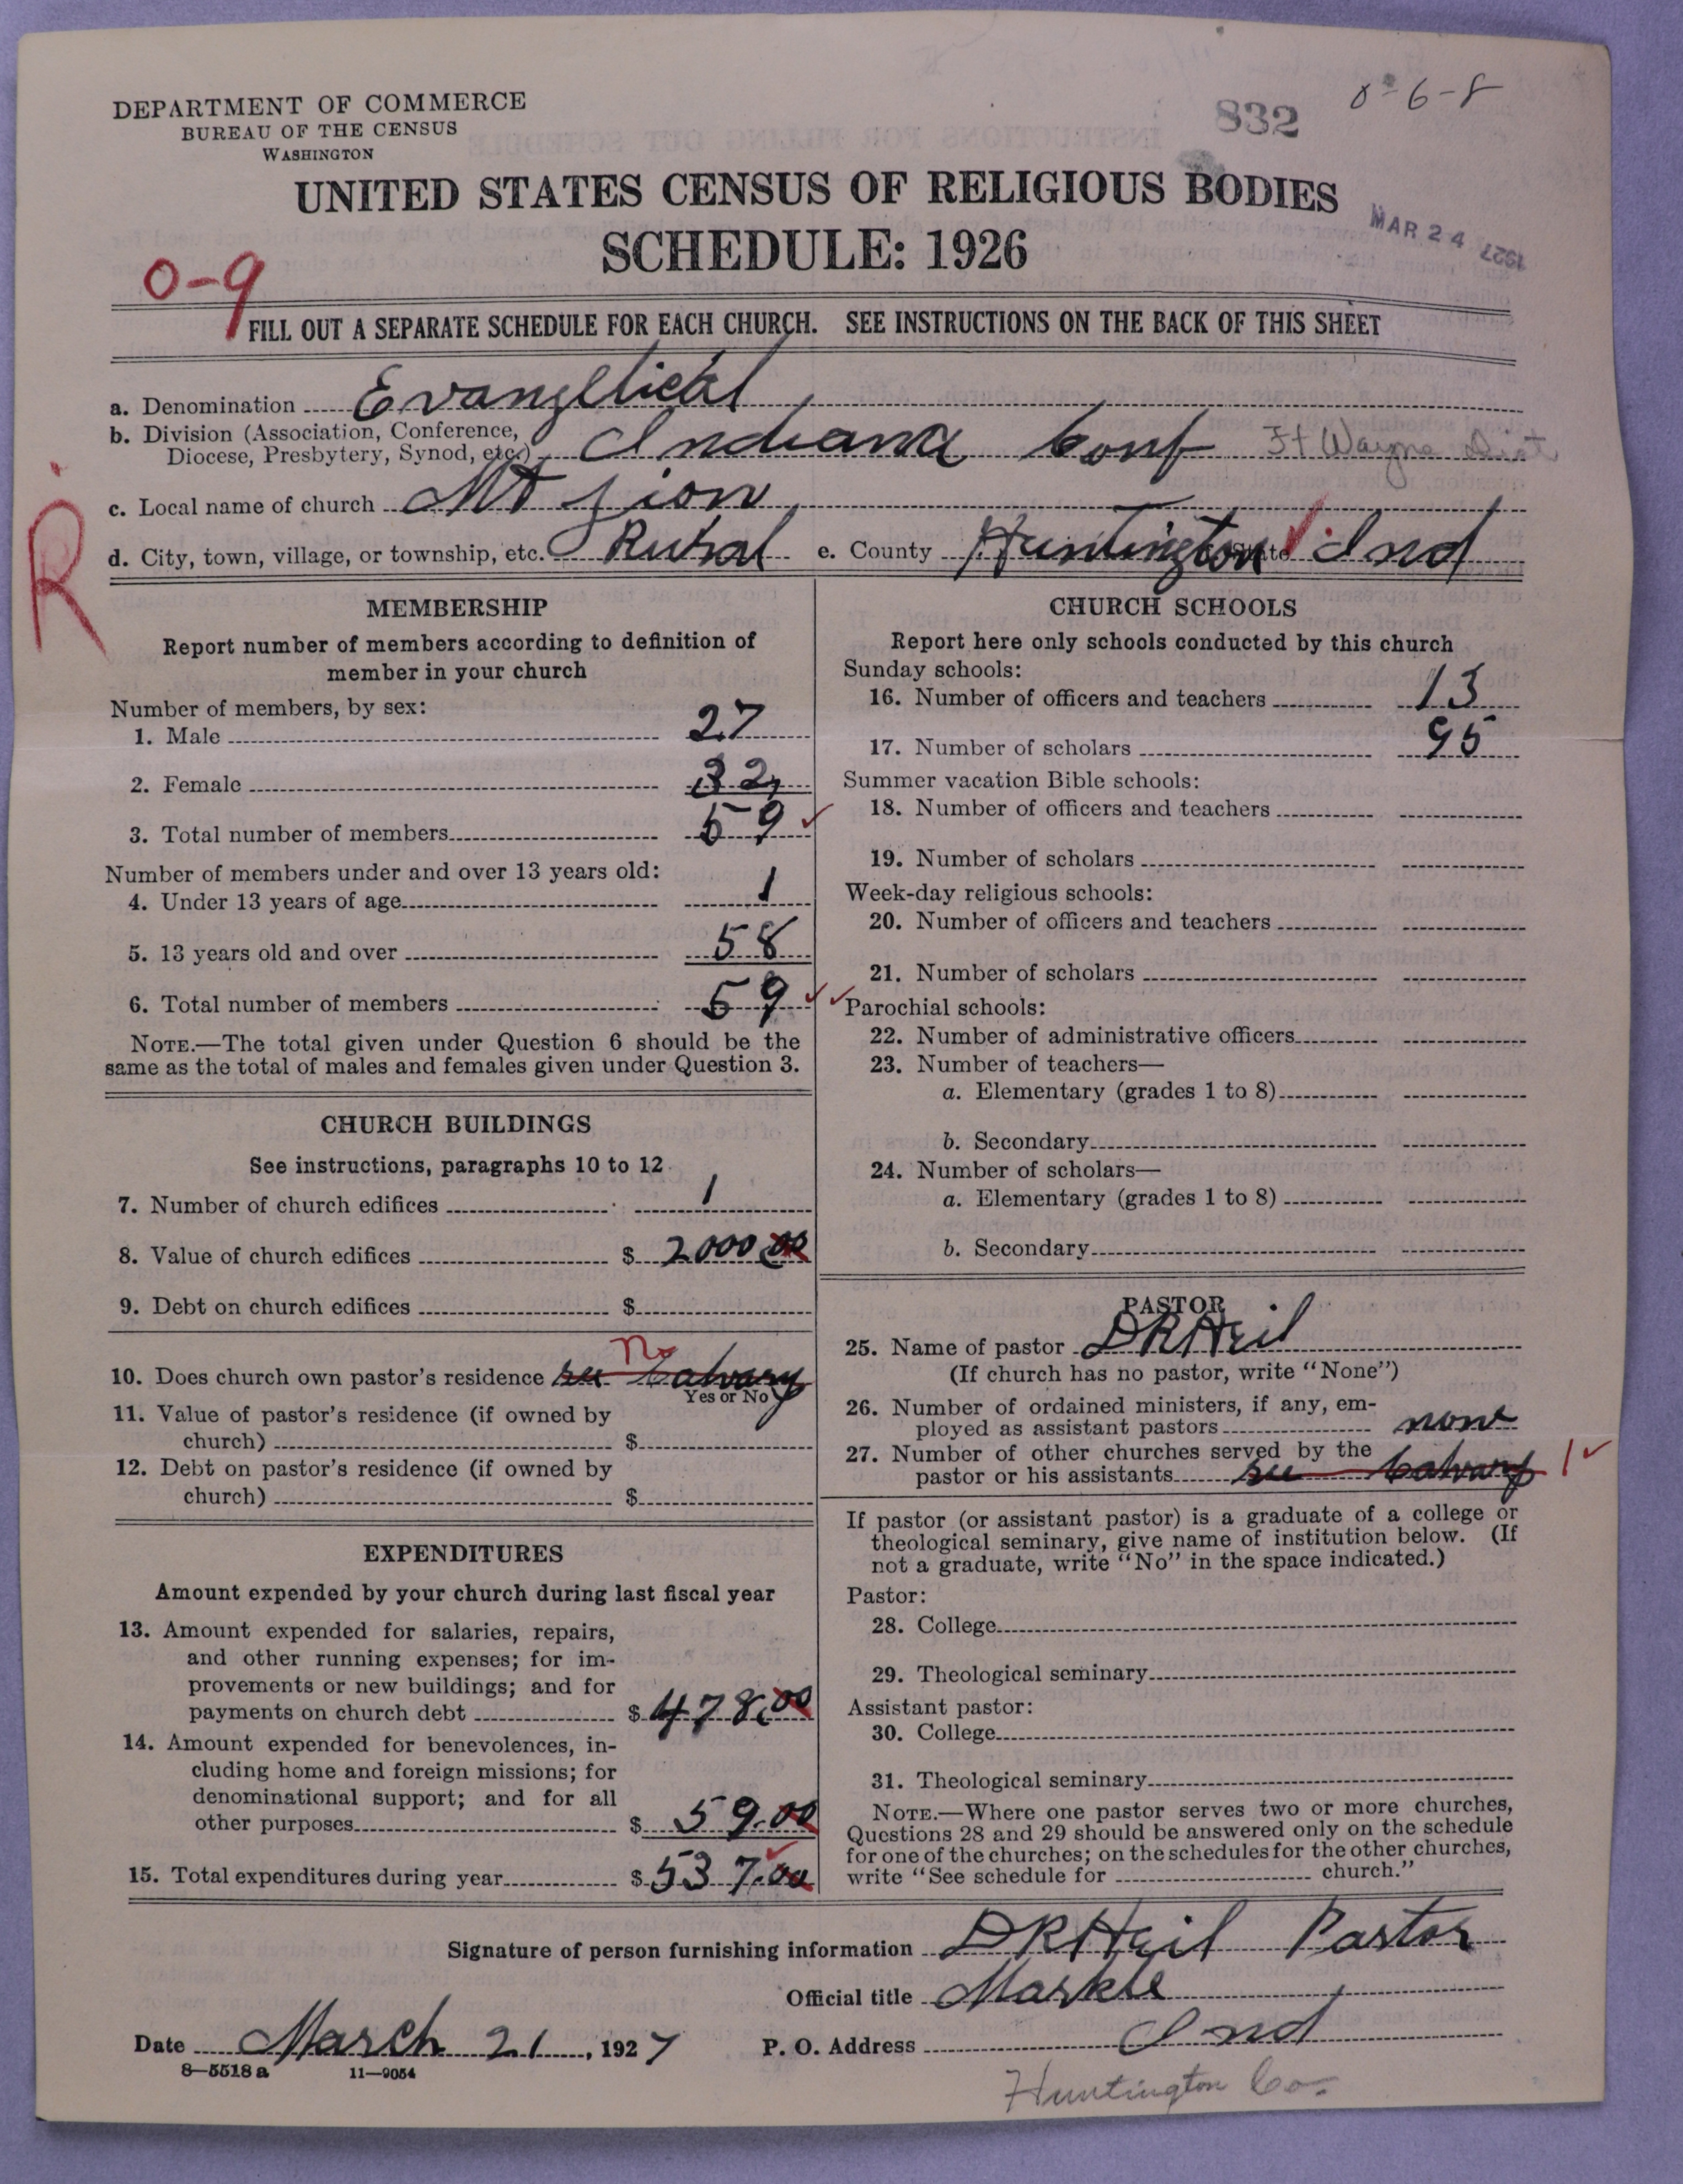 DEPARTMENT OF COMMERCE
BUREAU OF THE CENSUS
WASHINGTON
832
8-6-8
UNITED STATES CENSUS OF RELIGIOUS BODIES
SCHEDULE: 1926
MAR 24 1927
0-9
FILL OUT A SEPARATE SCHEDULE FOR EACH CHURCH. SEE INSTRUCTIONS ON THE BACK OF THIS SHEET
a. Denomination Evangelical
b. Division (Association, Conference,
Diocese, Presbytery, Synod, etc.) Indiana Conf Ft Wayne Dist
c. Local name of church Mt Zion
d. City, town, village, or township, etc. Rural e. County Huntington State Ind
R
MEMBERSHIP
Report number of members according to definition of
member in your church
Number of members, by sex:
1. Male 27
2. Female 32
3. Total number of members 59
Number of members under and over 13 years old:
4. Under 13 years of age 1
5. 13 years old and over 58
6. Total number of members 59
NOTE.—The total given under Question 6 should be the
same as the total of males and females given under Question 3.
CHURCH BUILDINGS
See instructions, paragraphs 10 to 12
7. Number of church edifices 1
8. Value of church edifices $ 2000 00
9. Debt on church edifices $
No
10. Does church own pastor's residence see Calvary
Yes or No
11. Value of pastor's residence (if owned by
church) $
12. Debt on pastor's residence (if owned by
church) $
EXPENDITURES
Amount expended by your church during last fiscal year
13. Amount expended for salaries, repairs,
and other running expenses; for im-
provements or new buildings; and for
payments on church debt $ 478.00
14. Amount expended for benevolences, in-
cluding home and foreign missions; for
denominational support; and for all
other purposes $ 59.00
15. Total expenditures during year $ 537.00
CHURCH SCHOOLS
Report here only schools conducted by this church
Sunday schools:
16. Number of officers and teachers 13
17. Number of scholars 95
Summer vacation Bible schools:
18. Number of officers and teachers
19. Number of scholars
Week-day religious schools:
20. Number of officers and teachers
21. Number of scholars
Parochial schools:
22. Number of administrative officers
23. Number of teachers—
a. Elementary (grades 1 to 8)
b. Secondary
24. Number of scholars—
a. Elementary (grades 1 to 8)
b. Secondary
PASTOR
25. Name of pastor D R Heil
(If church has no pastor, write "None")
26. Number of ordained ministers, if any, em-
ployed as assistant pastors none
27. Number of other churches served by the
pastor or his assistants see Calvary 1
If pastor (or assistant pastor) is a graduate of a college or
theological seminary, give name of institution below. (If
not a graduate, write "No" in the space indicated.)
Pastor:
28. College
29. Theological seminary
Assistant pastor:
30. College
31. Theological seminary
NOTE.—Where one pastor serves two or more churches,
Questions 28 and 29 should be answered only on the schedule
for one of the churches; on the schedules for the other churches,
write "See schedule for church."
Signature of person furnishing information D R Heil Pastor
Official title Markle
Date March 21, 1927 P. O. Address Ind
8-5518 a 11-9054
Huntington Co.